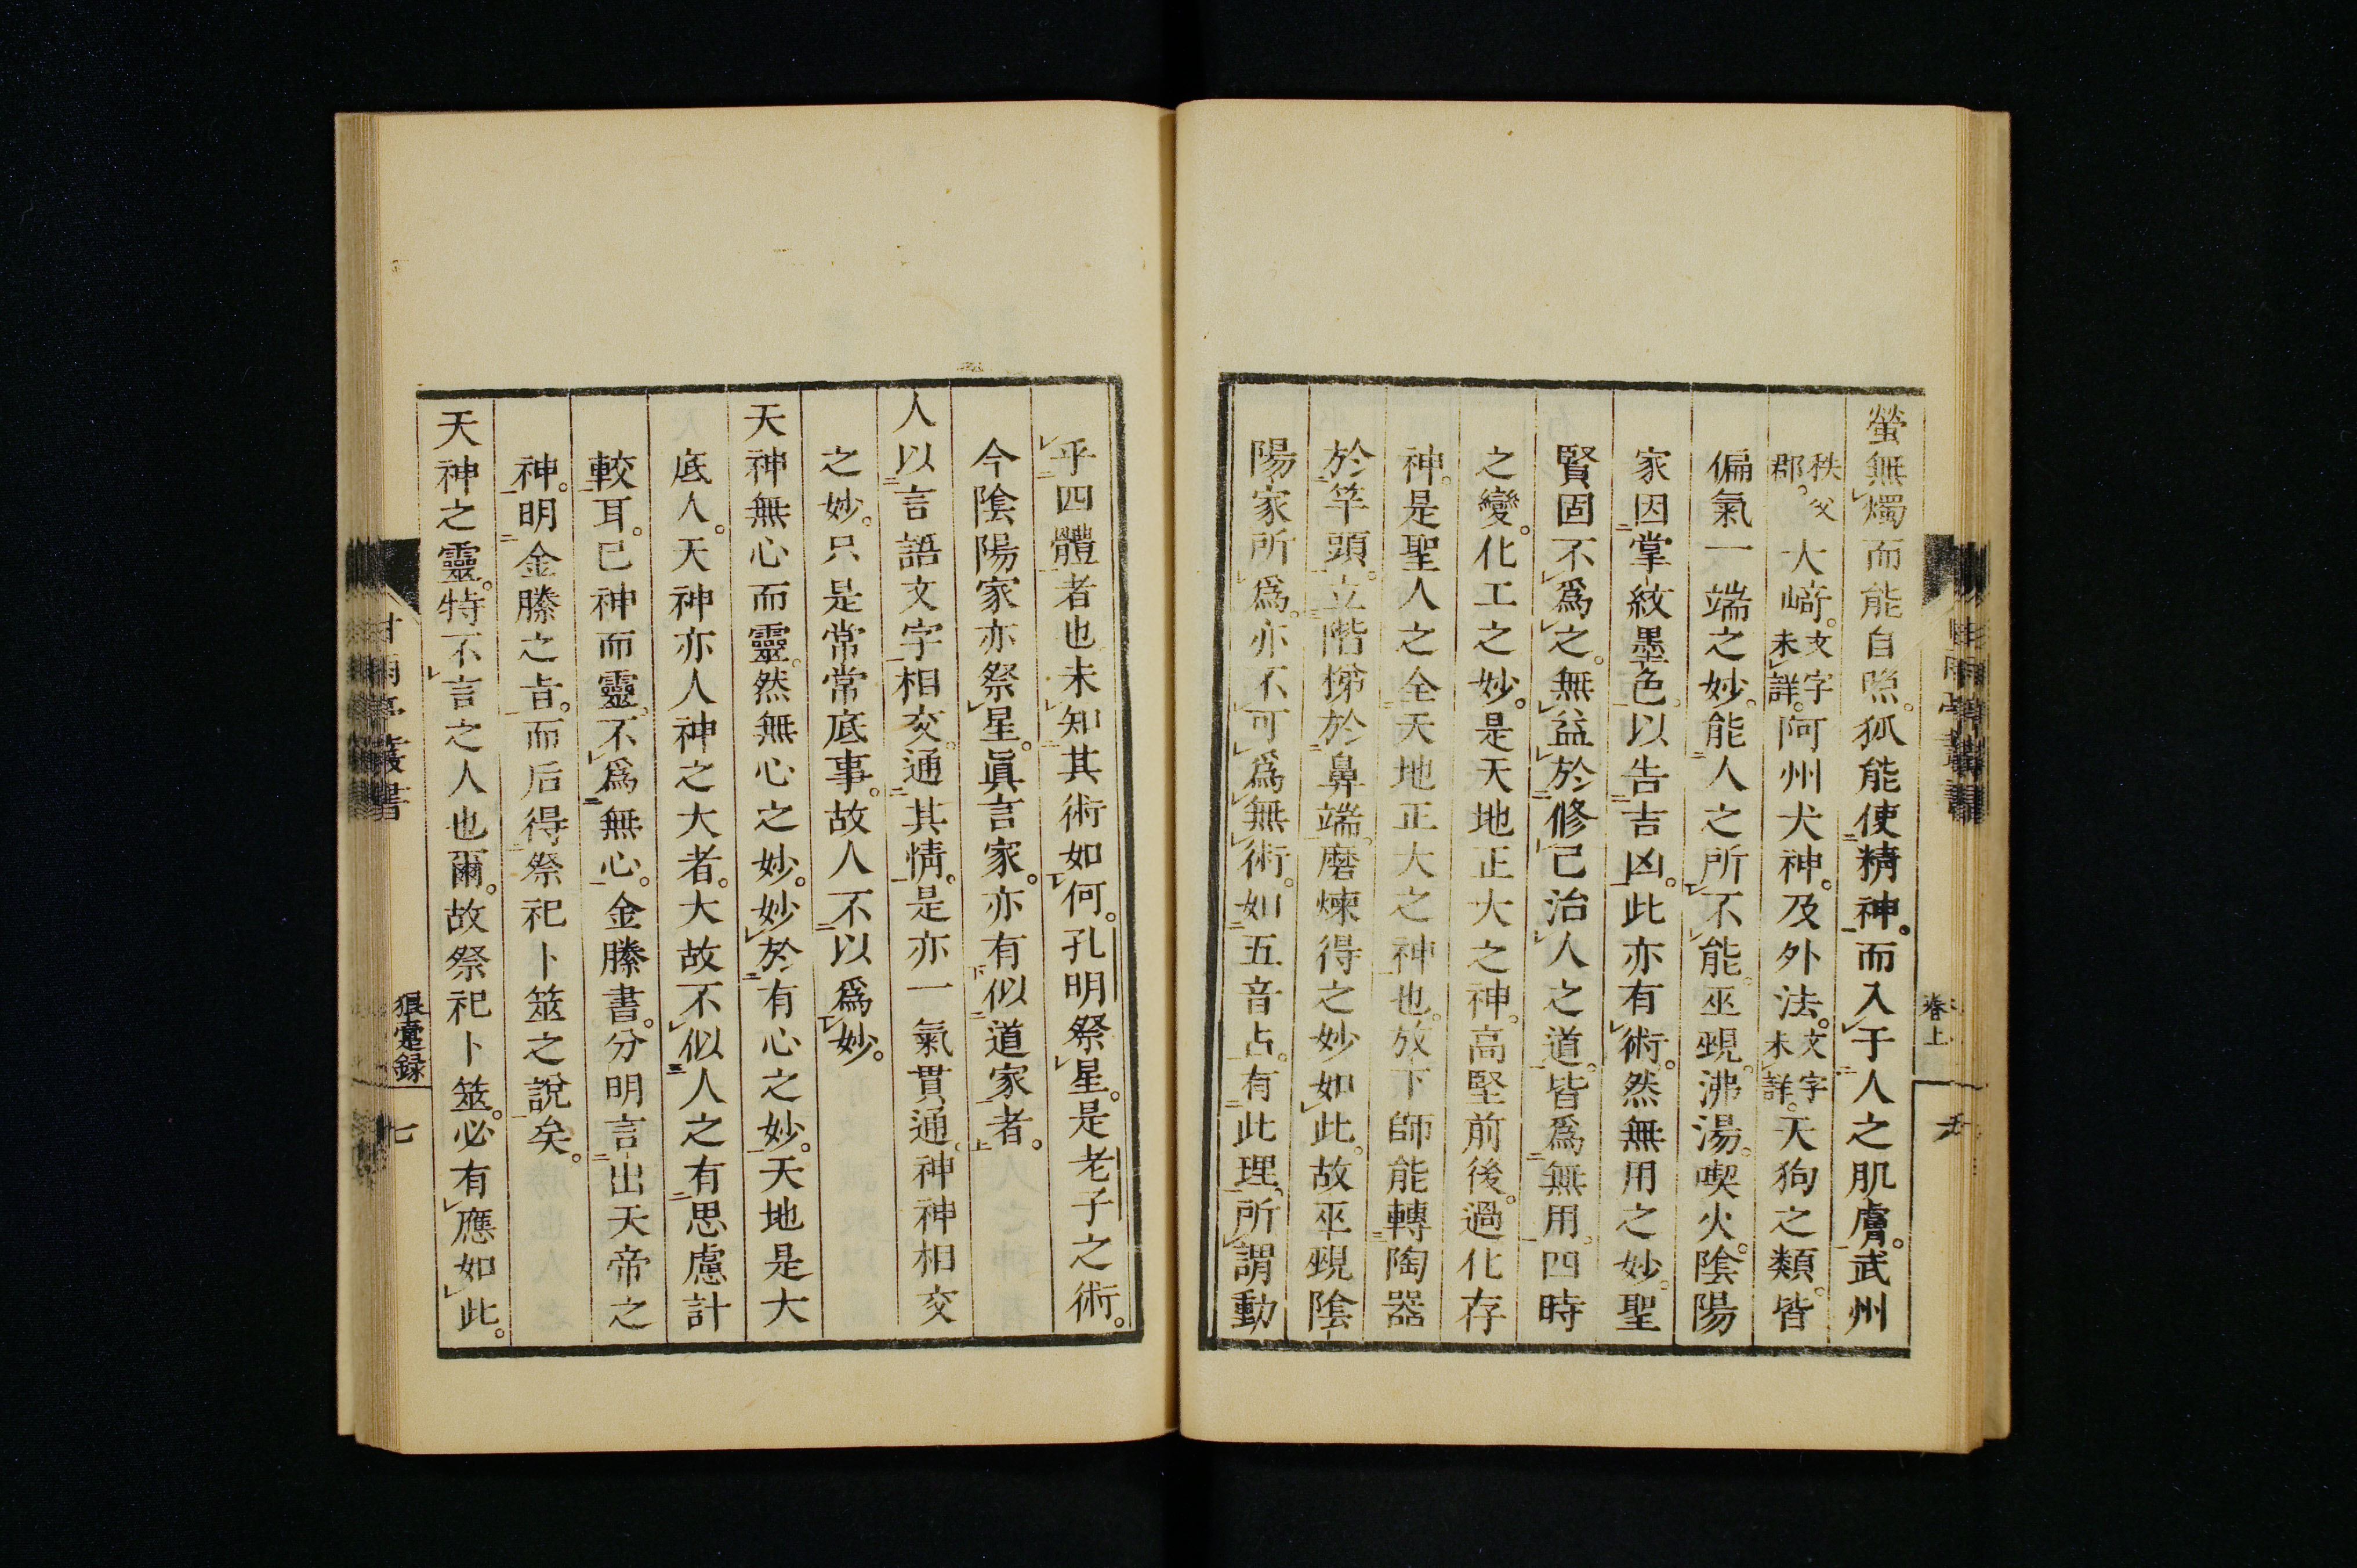 螢無燭而能自照。狐能使精神。而入于人之肌膚。武州
秩父郡。大﨑。文字未詳。阿州犬神。及外法。文字未詳。天狗之類。皆
偏氣一端之妙。能人之所不能。巫覡。沸湯。喫火。陰陽
家因掌紋墨色。以告吉凶。此亦有術。然無用之妙。聖
賢固不爲之。無益於修己治人之道。皆爲無用。四時
之變。化工之妙。是天地正大之神。高堅前後。過化存
神。是聖人之全天地正大之神也。放下師能轉陶器
於竿頭。立階梯於鼻端。磨煉得之妙如此。故巫覡陰
陽家所爲。亦不可爲無術。如五音占。有此理。所謂動
乎四體者也。未知其術如何。孔明祭星。是老子之術。
今陰陽家亦祭星。眞言家。亦有似道家者。
人以言語文字相交。通其情。是亦一氣貫通。神神相交
之妙。只是常常底事。故人不以爲妙。
天神無心而靈。然無心之妙。妙於有心之妙。天地是大
底人。天神亦人神之大者。大故不似人之有思慮計
較耳。已神而靈。不爲無心。金縢書。分明言出天帝之
神。明金縢之旨。而后得祭祀卜筮之說矣。
天神之靈。特不言之人也爾。故祭祀卜筮。必有應如此。
甘雨亭叢書
狼疐録
七
卷上